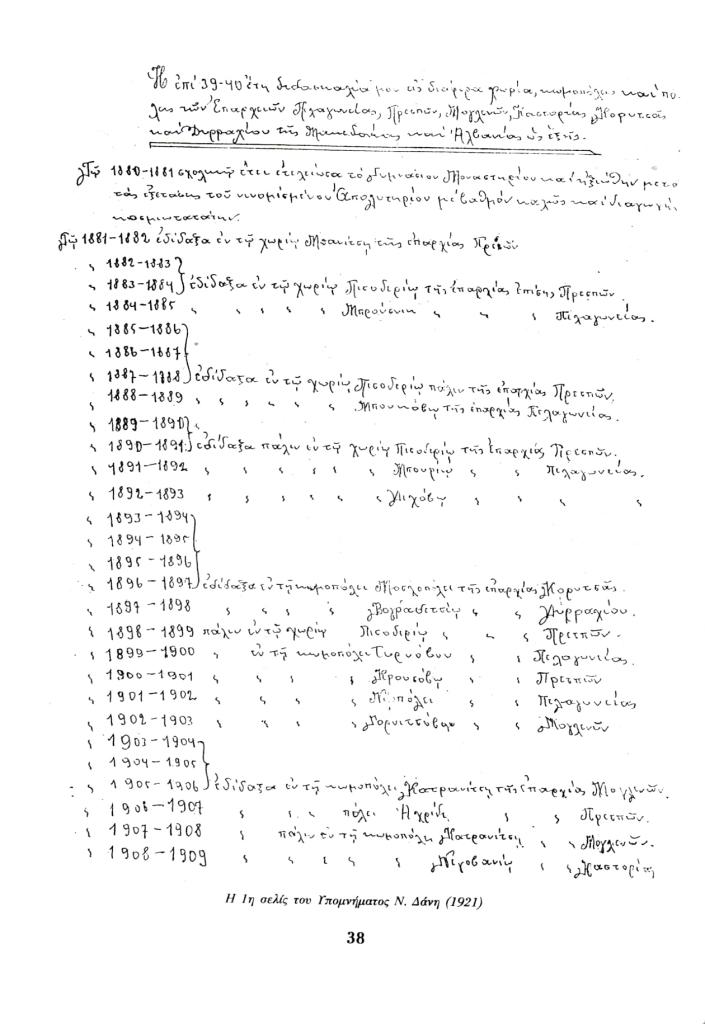 Ἡ ἐπί 39-40 ἔτη διδασκαλία μου εἰς διάφορα χωρία, κωμοπόλεις καί πό-
λεις τῶν Ἐπαρχειῶν Πελαγωνείας, Πρεσπῶν, Μογλενῶν, Καστορίας, Κορυτσᾶς
καί Δυρραχίου τῆς Μακεδονίας καί Ἀλβανίας ὡς ἑξῆς.
Τῷ 1880-1881 σχολικῷ ἔτει ἐτελείωσα τό Γυμνάσιον Μοναστηρίου καί ἠξιώθην μετά
τάς ἐξετάσεις τοῦ νενομισμένου Ἀπολυτηρίου μέ βαθμόν καλῶς καί διαγωγήν
κοσμιωτάτην.
Τῷ 1881-1882 ἐδίδαξα ἐν τῷ χωρίῳ Μπανίτσῃ τῆς ἐπαρχίας Πρεσπῶν
" 1882-1883
" 1883-1884 ἐδίδαξα ἐν τῷ χωρίῳ Πισοδερίῳ τῆς ἐπαρχίας ἐπίσης Πρεσπῶν.
" 1884-1885 " " " " Μπρούσνικ " " Πελαγωνείας.
" 1885-1886
" 1886-1887
" 1887-1888 ἐδίδαξα ἐν τῷ χωρίῳ Πισοδερίῳ πάλιν τῆς ἐπαρχίας Πρεσπῶν.
" 1888-1889 " " " " " Μπουκόβῳ τῆς ἐπαρχίας Πελαγωνείας.
" 1889-1890 "
" 1890-1891 ἐδίδαξα πάλιν ἐν τῷ χωρίῳ Πισοδερίῳ τῆς Ἐπαρχίας Πρεσπῶν.
" 1891-1892 " " " " " " Πελαγωνείας.
" 1892-1893 " " " " " " " " "
" 1893-1894
" 1894-1895
" 1895-1896
" 1896-1897 ἐδίδαξα ἐν τῇ κωμοπόλει Μοσχοπόλει τῆς ἐπαρχίας Κορυτσᾶς.
" 1897-1898 " " " " " " Δυρραχίου.
" 1898-1899 πάλιν ἐν τῷ χωρίῳ Πισοδερίῳ " " Πρεσπῶν.
" 1899-1900 " ἐν τῇ κωμοπόλει Τυρνόβου " " Πελαγωνείας.
" 1900-1901 " " " " Κρουσόβῳ " " Πρεσπῶν
" 1901-1902 " " " " " " Πελαγωνείας
" 1902-1903 " " " " Γορνιτσόβῳ " " Μογλενῶν
" 1903-1904
" 1904-1905
" 1905-1906 ἐδίδαξα ἐν τῇ κωμοπόλει Κατρανίτσῃ τῆς ἐπαρχίας Μογλενῶν.
" 1906-1907 " " " πόλει Ἀχρίδι " " Πρεσπῶν.
" 1907-1908 " πάλιν ἐν τῇ κωμοπόλει Κατρανίτσῃ " " Μογλενῶν.
" 1908-1909 " " " " Νεγοβάνῃ " " Καστορίας
Η 1η σελίς του Υπομνήματος Ν. Δάνη (1921)
38